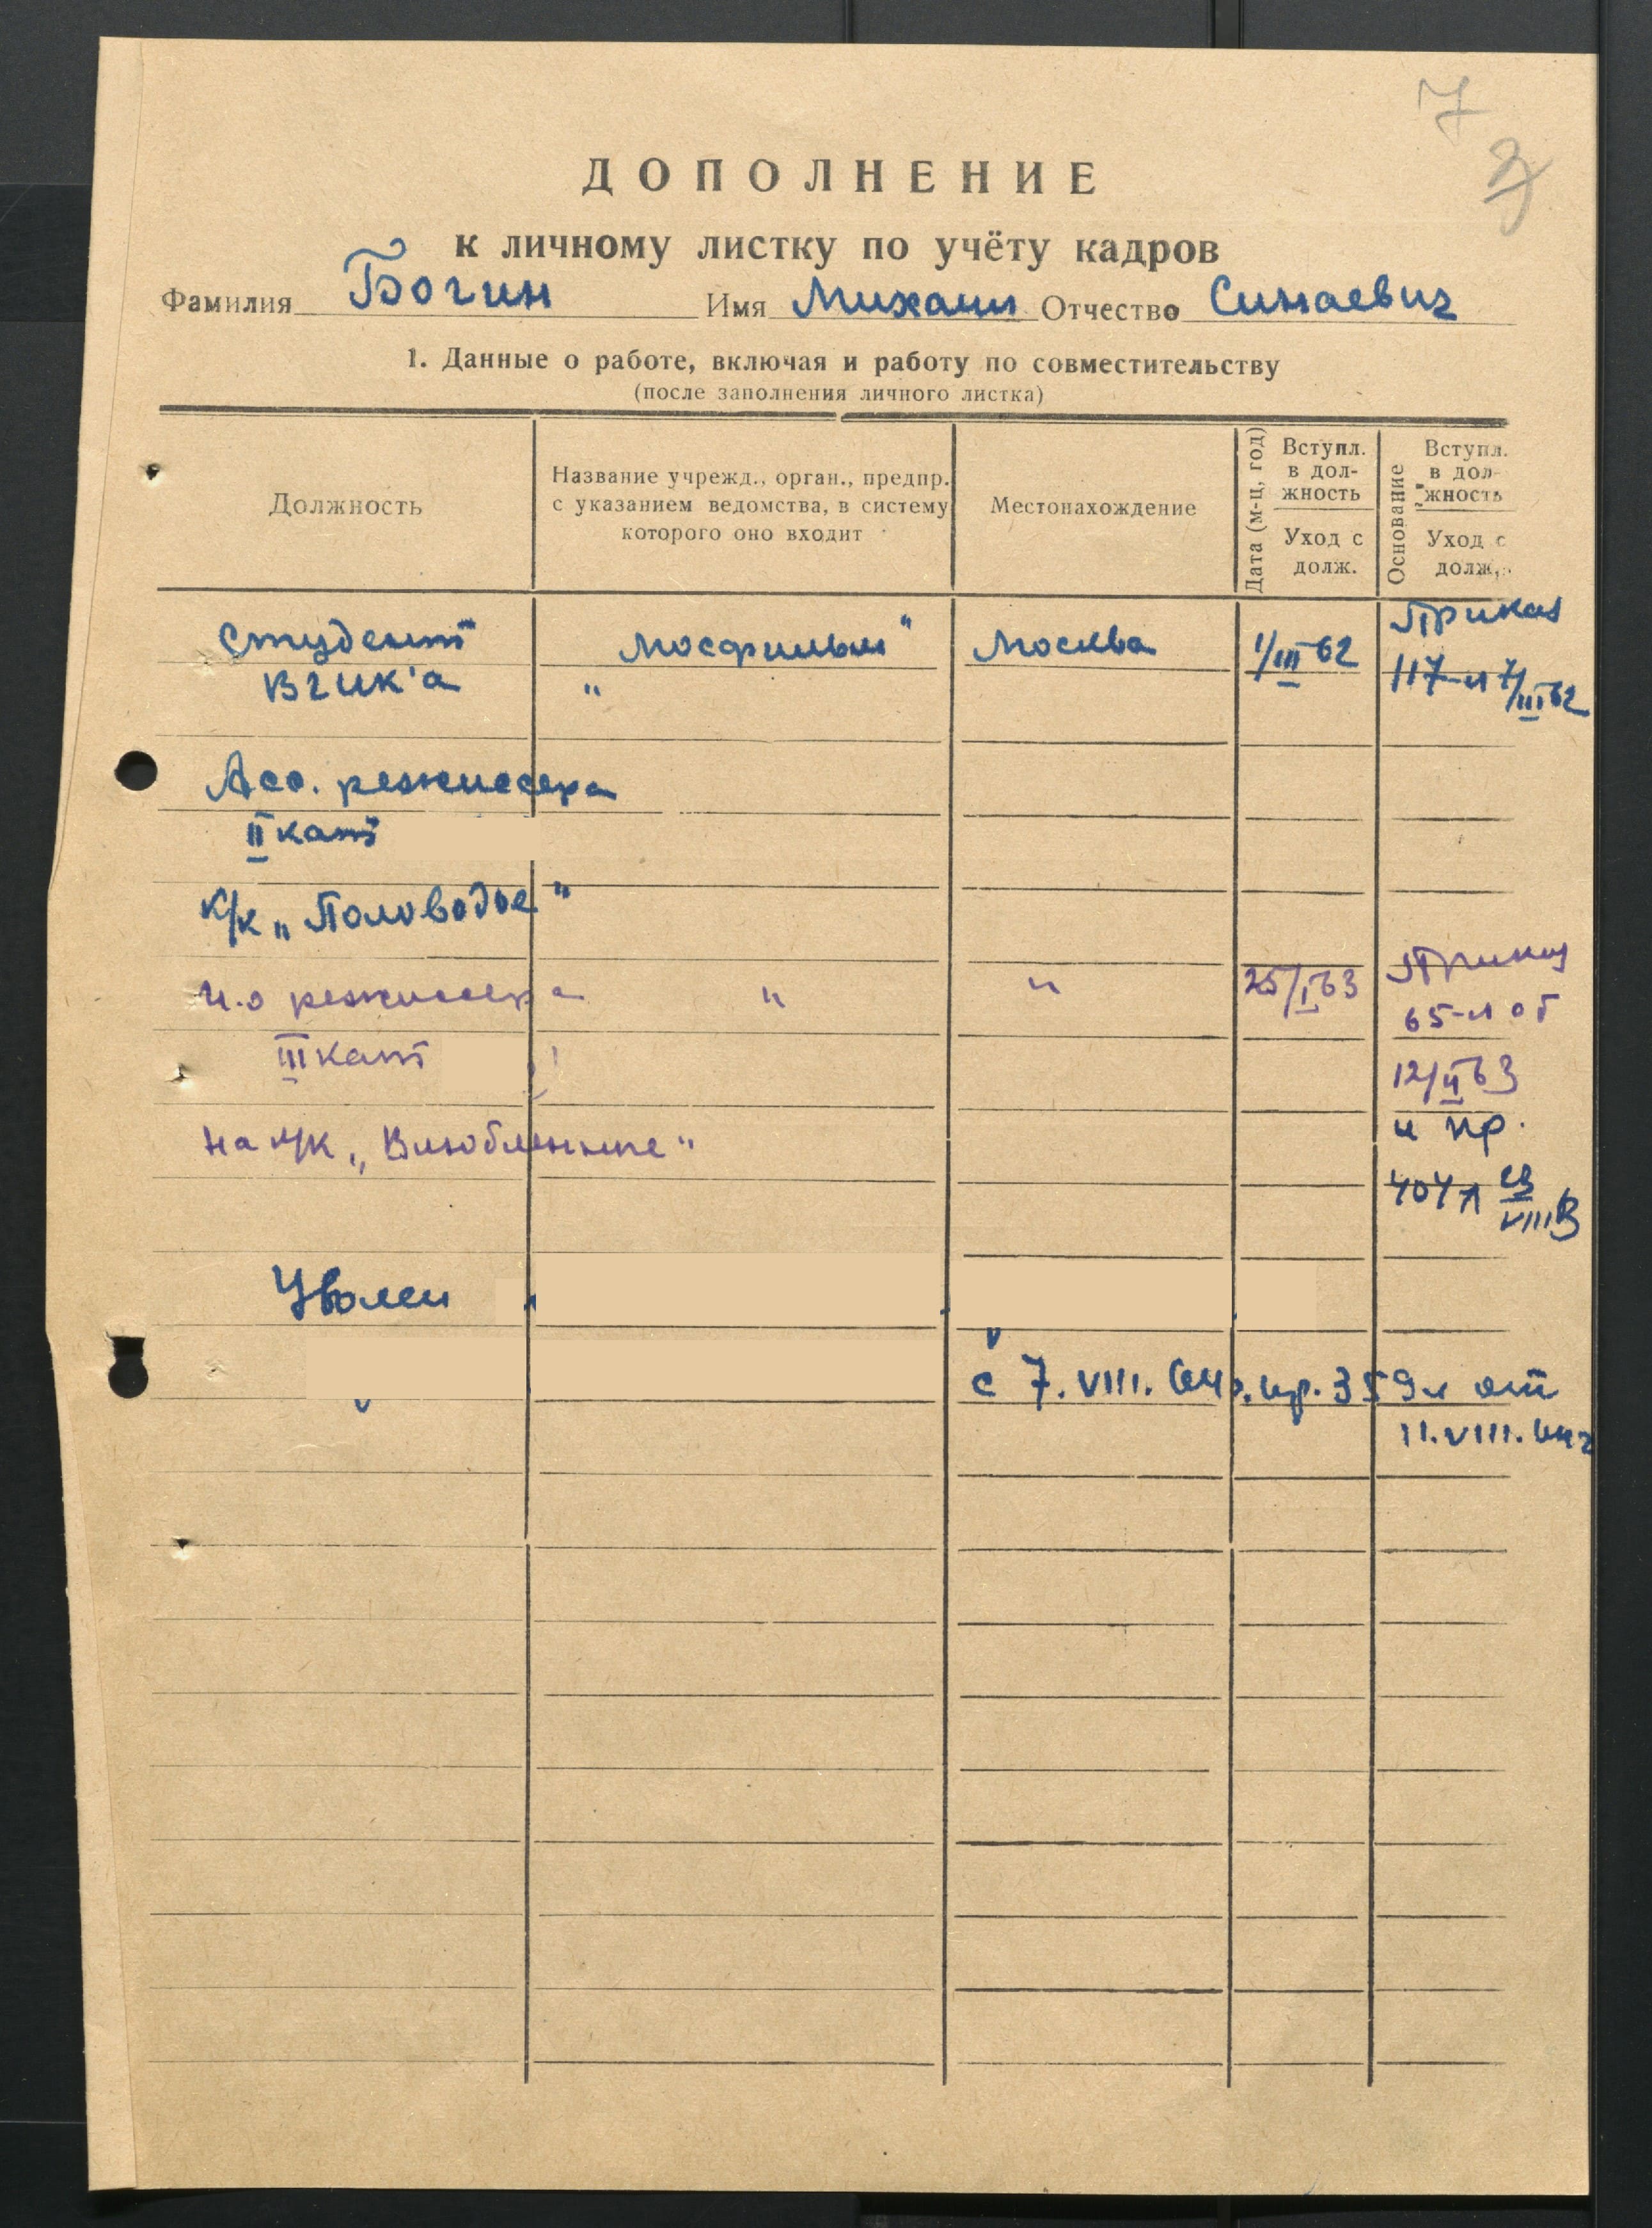 7
ДОПОЛНЕНИЕ
к личному листку по учёту кадров
Фамилия Богин Имя Михаил Отчество Синаевич
1. Данные о работе, включая и работу по совместительству
(после заполнения личного листка)
Должность
Название учрежд., орган., предпр.
с указанием ведомства, в систему
которого оно входит
Местонахождение
Дата (м-ц, год)
Вступл.
в дол-
жность
Уход с
долж.
Основание
Вступл.
в дол-
жность
Уход с
долж.
Студент "Мосфильм" Москва 1/III 62 Приказ
ВГИК'а " 117-л 7/III 62
Асс. режиссера
II кат
к/к „Половодье"
и.о режиссера " " 25/I 63 Приказ
65-л от
III кат 12/II 63
и пр.
на к/к „Влюбленные"
404 л
Уволен
с 7.VIII.64г. пр. 359л от
11.VIII.64г